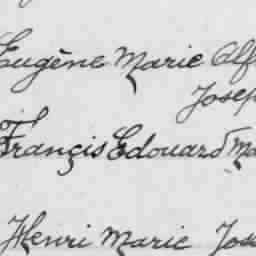 Eugène Marie Alf
Josep
François Edouard Ma
Henri Marie Jos